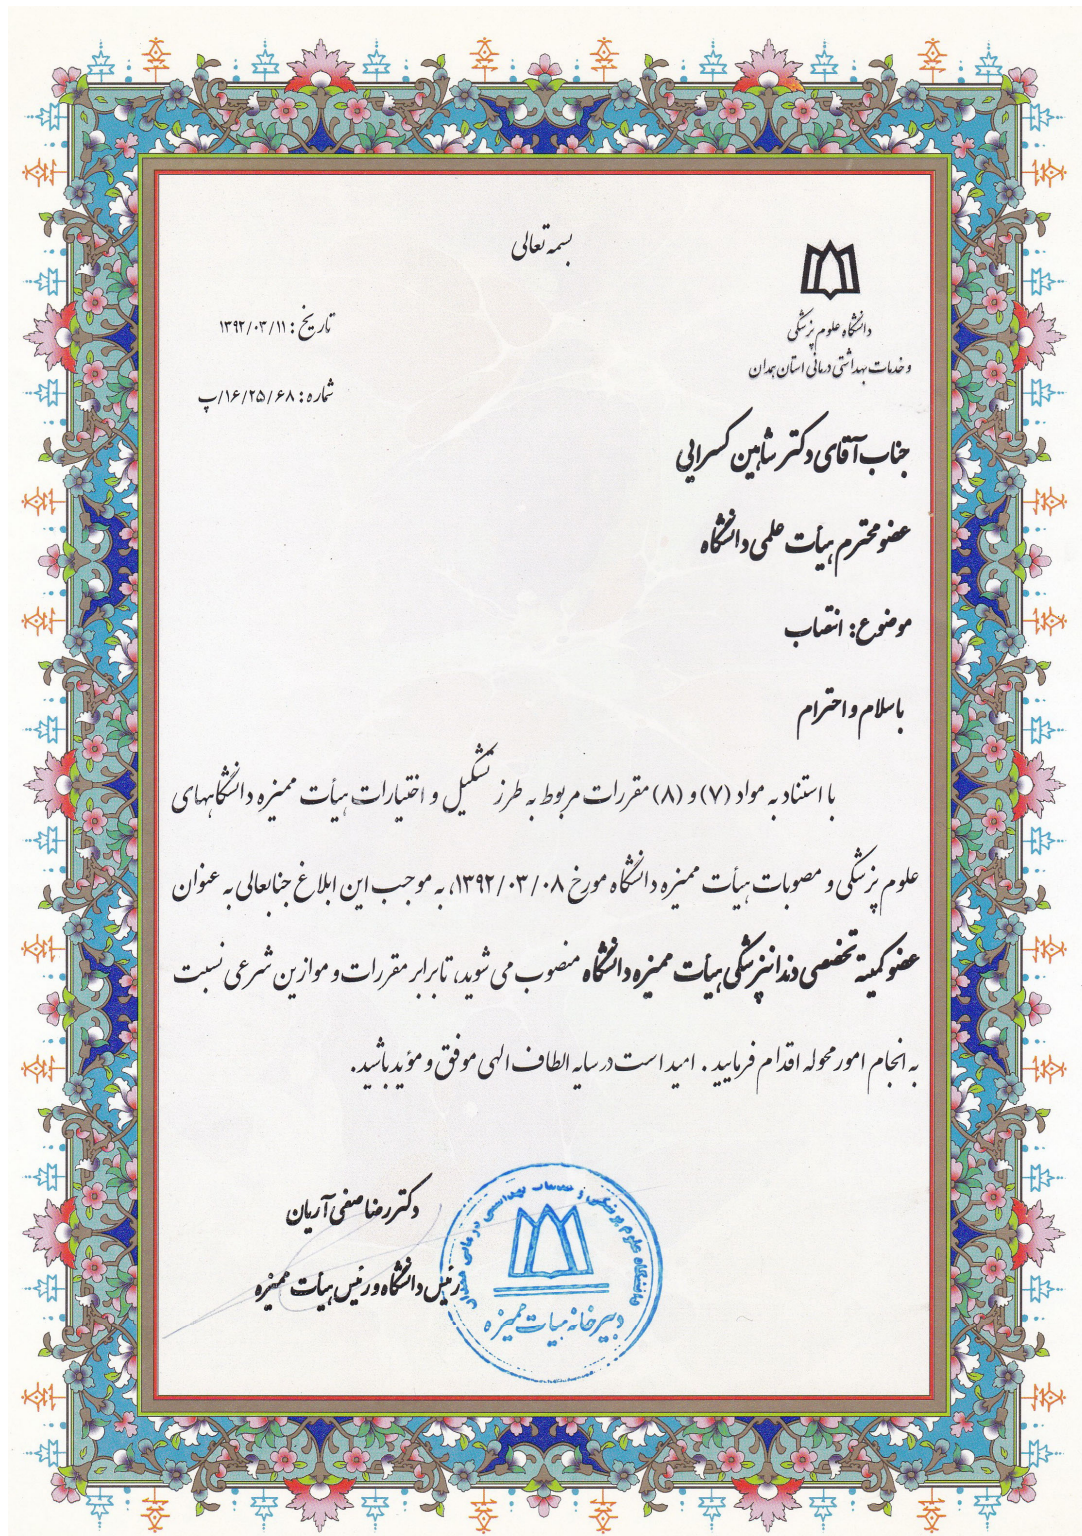 بسمه تعالی
دانشگاه علوم پزشکی
و خدمات بهداشتی درمانی استان همدان
تاریخ : ۱۳۹۲/۰۳/۱۱
شماره : ۱۶/۲۵/۶۸/پ
جناب آقای دکتر شاهین کسرایی
عضو محترم هیأت علمی دانشگاه
موضوع: انتصاب
با سلام و احترام
با استناد به مواد (۷) و (۸) مقررات مربوط به طرز تشکیل و اختیارات هیأت ممیزه دانشگاههای
علوم پزشکی و مصوبات هیأت ممیزه دانشگاه مورخ ۱۳۹۲/۰۳/۰۸، به موجب این ابلاغ جنابعالی به عنوان
عضو کمیته تخصصی دندانپزشکی هیأت ممیزه دانشگاه منصوب می شوید، تا برابر مقررات و موازین شرعی نسبت
به انجام امور محوله اقدام فرمایید . امید است در سایه الطاف الهی موفق و مؤید باشید.
دکتر رضا صفی آریان
رئیس دانشگاه و رئیس هیأت ممیزه
دانشگاه علوم پزشکی و خدمات بهداشتی درمانی همدان
دبیرخانه هیات ممیزه